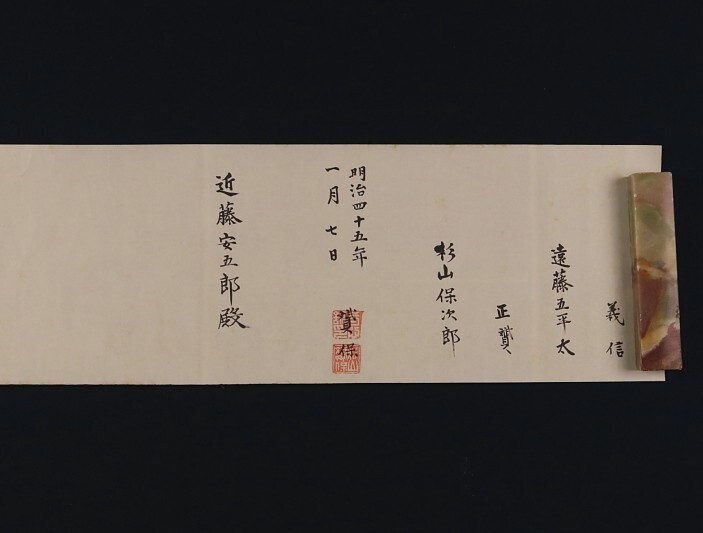 義信
遠藤五平太
正贇
杉山保次郎
明治四十五年
一月七日
贇保
近藤安五郎殿